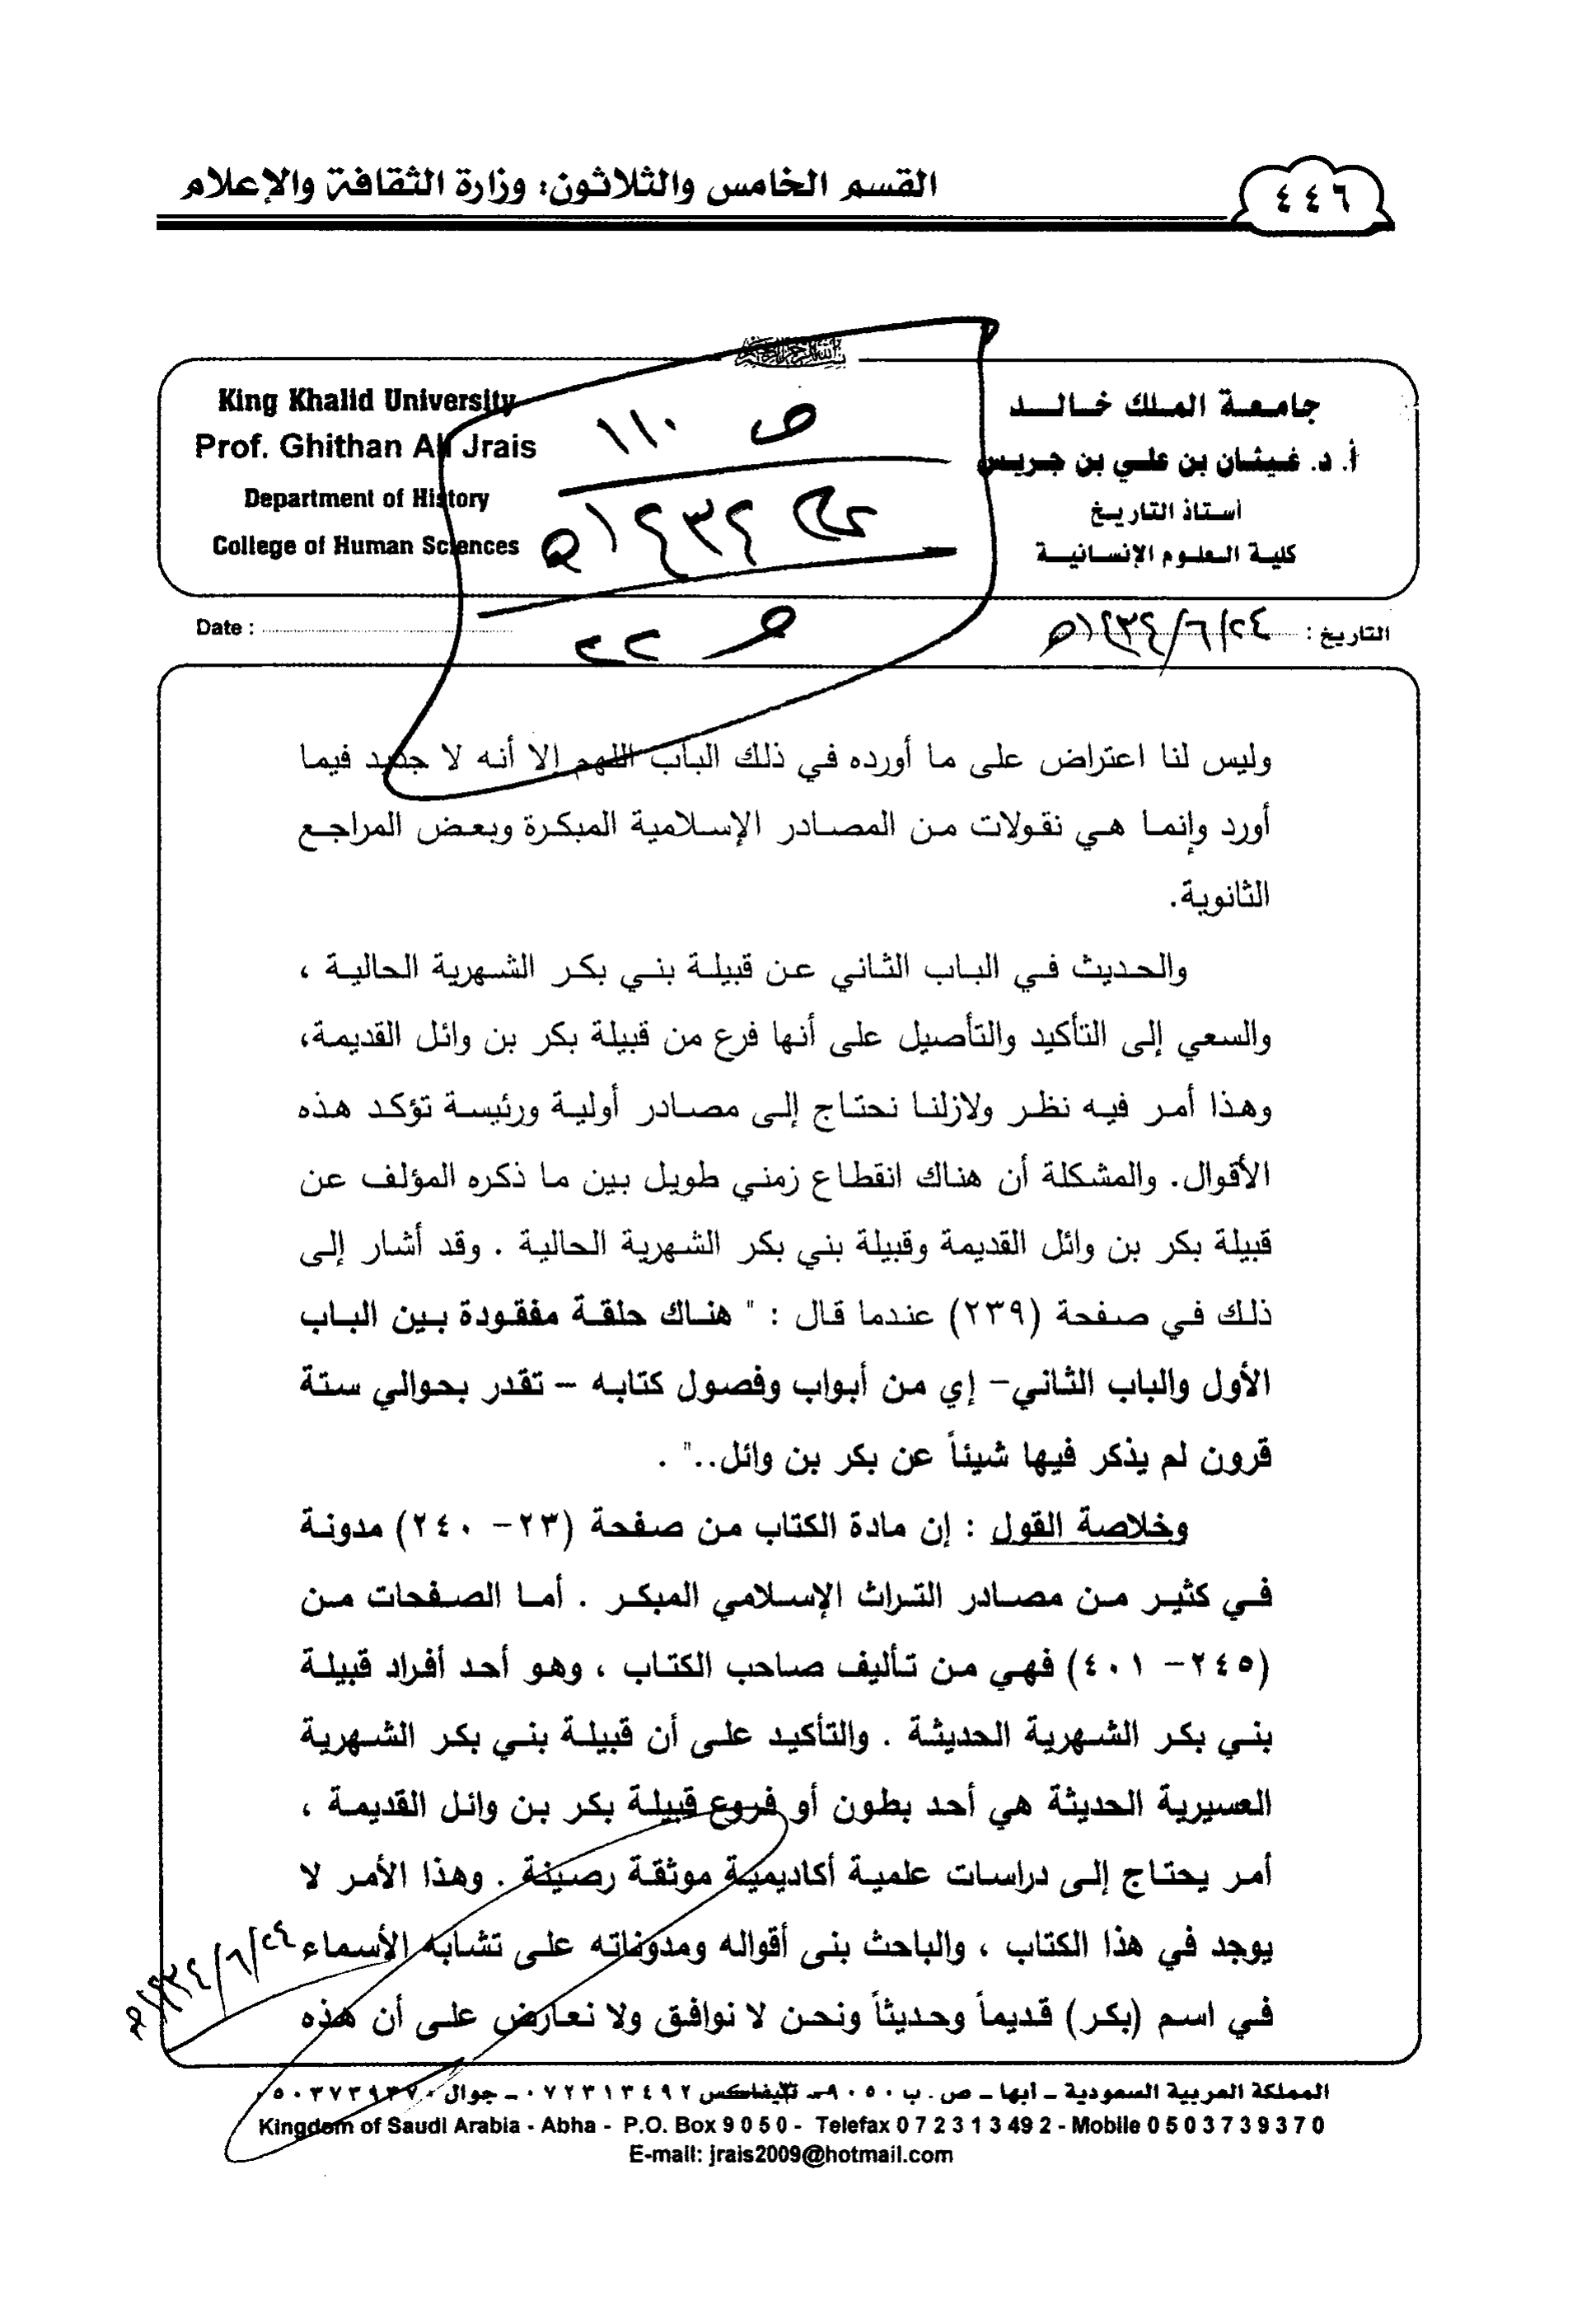 القسم الخامس والثلاثون: وزارة الثقافة والإعلام
٤٤٦
King Khalid University
Prof. Ghithan Ali Jrais
Department of History
College of Human Sciences
جامعة الملك خالد
أ. د. غيثان بن علي بن جريس
أستاذ التاريخ
كلية العلوم الإنسانية
ص ١١٠
١٤٣٤هـ
Date :
التاريخ : ٢٤/٦/١٤٣٤هـ
وليس لنا اعتراض على ما أورده في ذلك الباب اللهم إلا أنه لا جديد فيما
أورد وإنما هي نقولات من المصادر الإسلامية المبكرة وبعض المراجع
الثانوية.
والحديث في الباب الثاني عن قبيلة بني بكر الشهرية الحالية ،
والسعي إلى التأكيد والتأصيل على أنها فرع من قبيلة بكر بن وائل القديمة،
وهذا أمر فيه نظر ولازلنا نحتاج إلى مصادر أولية ورئيسة تؤكد هذه
الأقوال. والمشكلة أن هناك انقطاع زمني طويل بين ما ذكره المؤلف عن
قبيلة بكر بن وائل القديمة وقبيلة بني بكر الشهرية الحالية . وقد أشار إلى
ذلك في صفحة (٢٣٩) عندما قال : " هناك حلقة مفقودة بين الباب
الأول والباب الثاني– إي من أبواب وفصول كتابه – تقدر بحوالي ستة
قرون لم يذكر فيها شيئاً عن بكر بن وائل.." .
وخلاصة القول : إن مادة الكتاب من صفحة (٢٣– ٢٤٠) مدونة
في كثير من مصادر التراث الإسلامي المبكر . أما الصفحات من
(٢٤٥– ٤٠١) فهي من تأليف صاحب الكتاب ، وهو أحد أفراد قبيلة
بني بكر الشهرية الحديثة . والتأكيد على أن قبيلة بني بكر الشهرية
العسيرية الحديثة هي أحد بطون أو فروع قبيلة بكر بن وائل القديمة ،
أمر يحتاج إلى دراسات علمية أكاديمية موثقة رصينة . وهذا الأمر لا
يوجد في هذا الكتاب ، والباحث بنى أقواله ومدوناته على تشابه الأسماء
في اسم (بكر) قديماً وحديثاً ونحن لا نوافق ولا نعارض على أن هذه
٢٤/٦/١٤٣٤هـ
المملكة العربية السعودية ـ أبها ـ ص. ب ٩٠٥٠ ـ تليفاكس ٠٧٢٣١٣٤٩٢ ـ جوال ٠٥٠٣٧٣٩٣٧٠
Kingdom of Saudi Arabia - Abha - P.O. Box 9 0 5 0 - Telefax 0 7 2 3 1 3 49 2 - Mobile 0 5 0 3 7 3 9 3 7 0
E-mail: jrais2009@hotmail.com